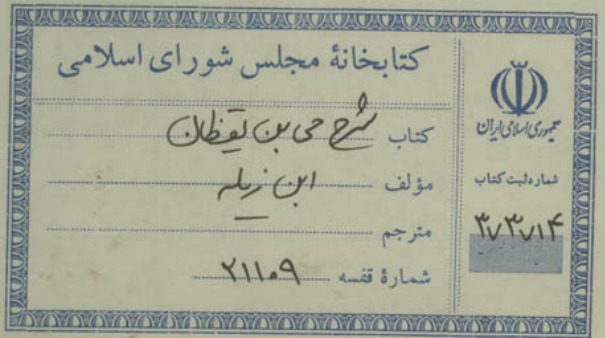 کتابخانهٔ مجلس شورای اسلامی
کتاب شرح حی بن یقظان
مؤلف ابن زیله
مترجم
شمارهٔ قفسه ۲۱۱۰۹
جمهوری اسلامی ایران
شماره ثبت کتاب
۳۷۳۷۱۴